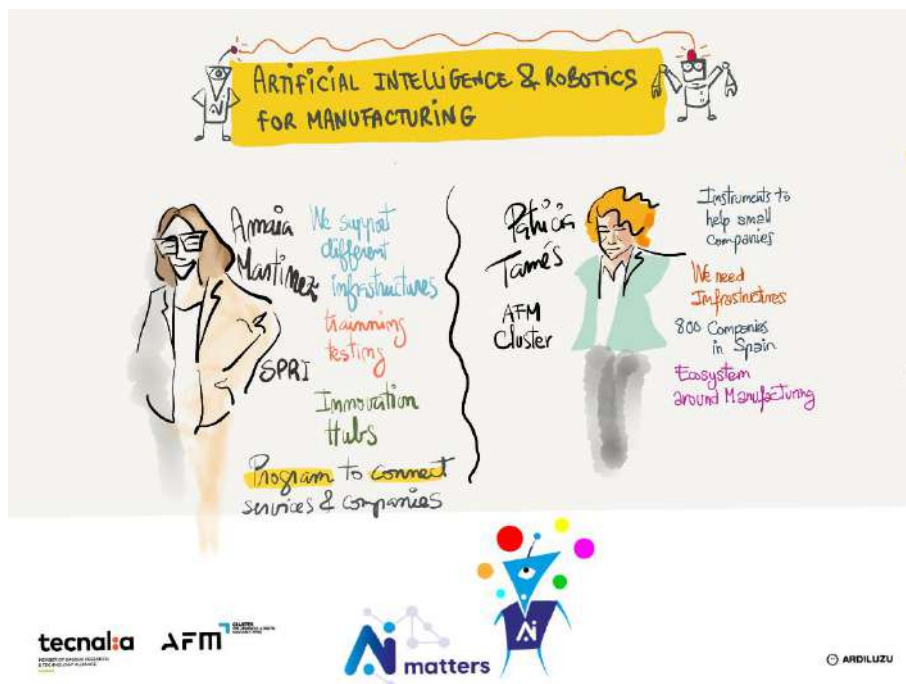 ARTIFICIAL INTELLIGENCE & ROBOTICS
FOR MANUFACTURING
Amaia
Martinez
SPRI
We support
different
infrastructures
trainning
testing
Innovation
Hubs
Program to connect
services & companies
Patricia
Tamés
AFM
Cluster
Instruments to
help small
companies
We need
Infrastructures
800 Companies
in Spain
Ecosystem
around Manufacturing
tecnal:a
MEMBER OF BASQUE RESEARCH
& TECHNOLOGY ALLIANCE
AFM
CLUSTER
Ai
matters
Ai
ARDILUZU